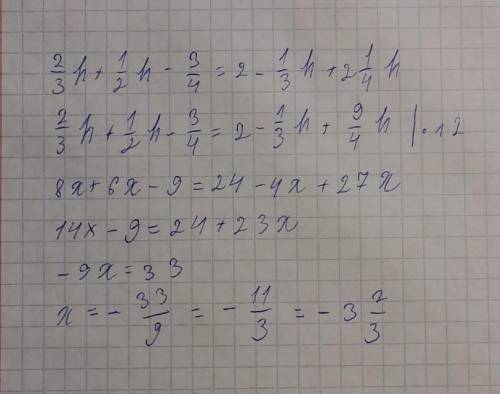 2/3 h + 1/2 h - 3/4 = 2 - 1/3 h + 2 1/4 h
2/3 h + 1/2 h - 3/4 = 2 - 1/3 h + 9/4 h | · 12
8x + 6x - 9 = 24 - 4x + 27x
14x - 9 = 24 + 23x
- 9x = 33
x = - 33/9 = - 11/3 = - 3 2/3